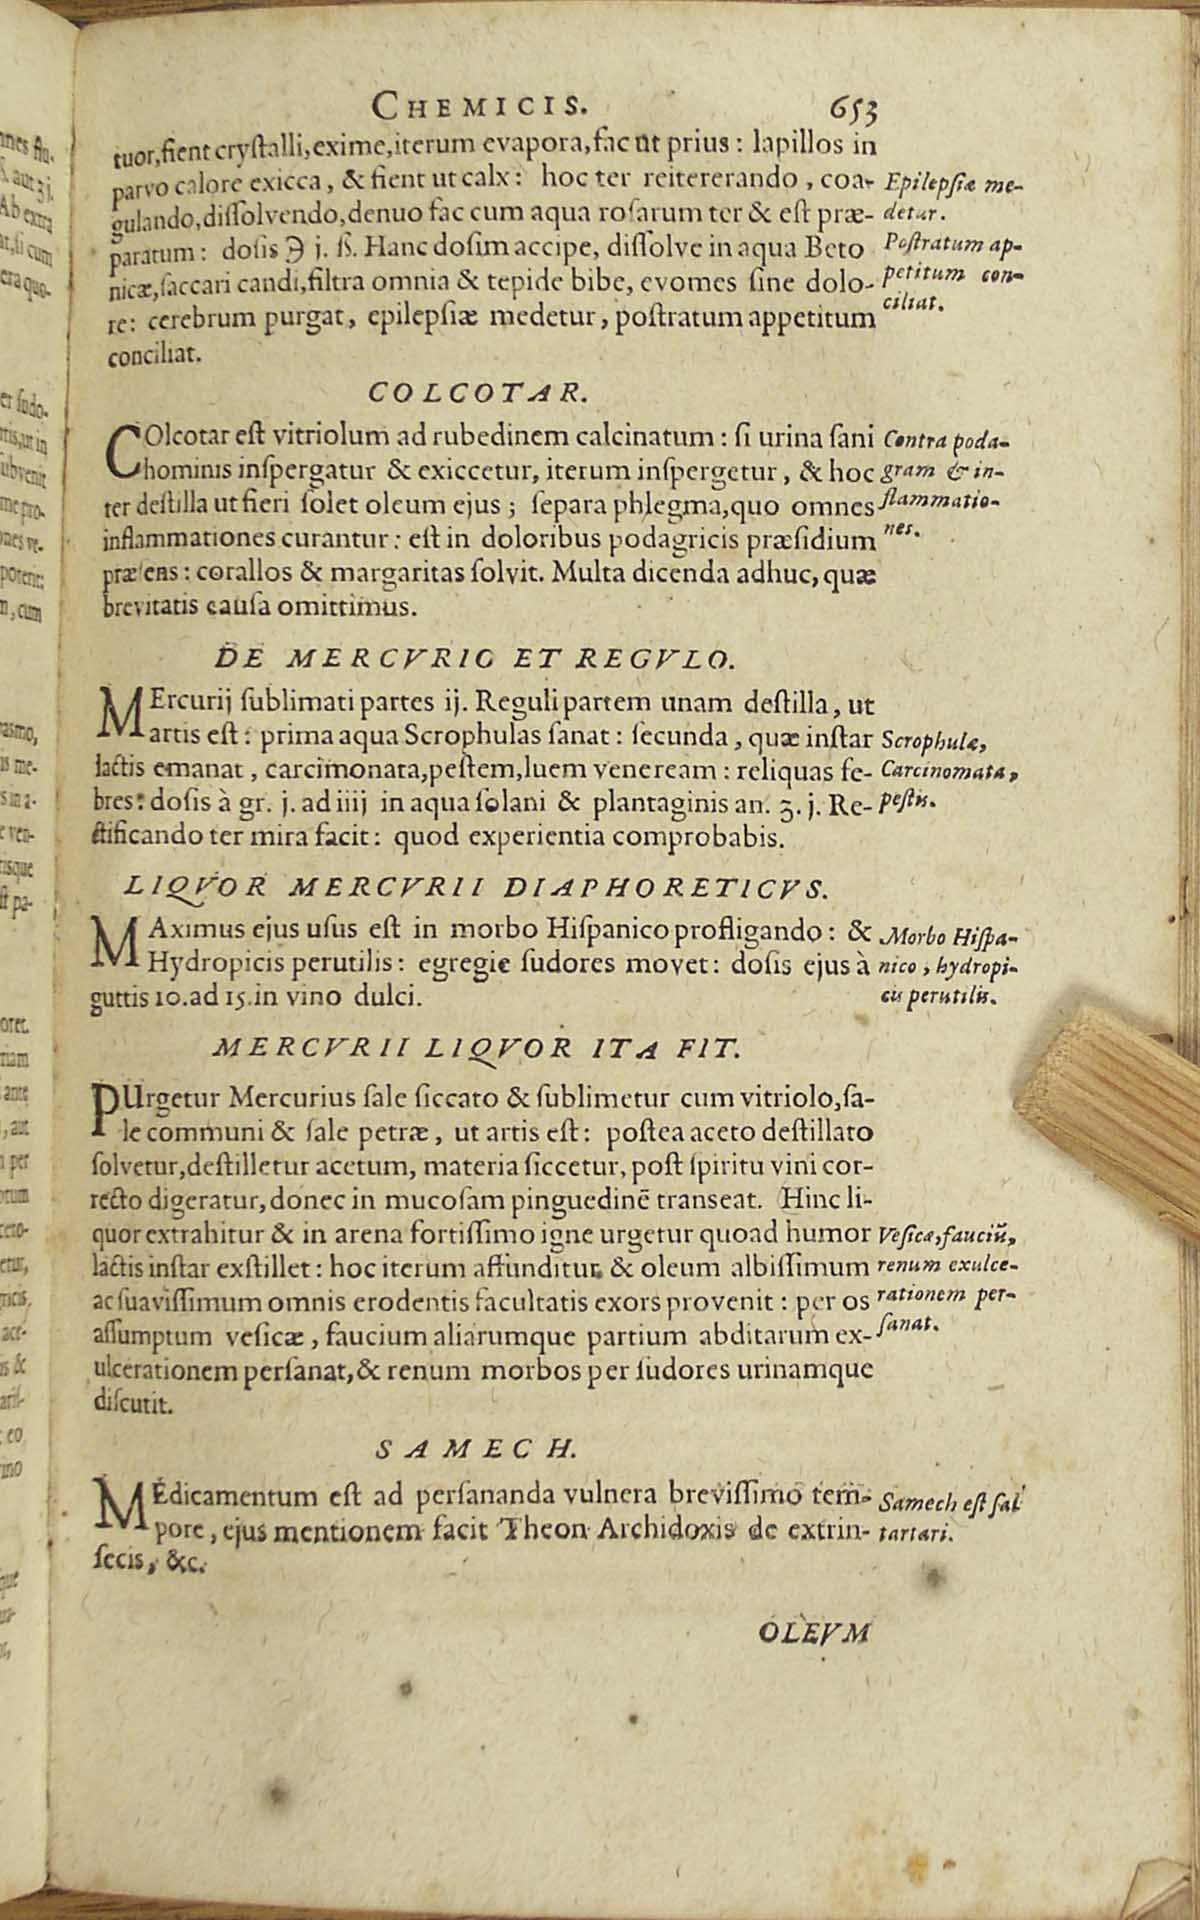 CHEMICIS. 653
tuor, fient crystalli, exime, iterum evapora, fac ut prius: lapillos in
parvo calore exicca, & fient ut calx: hoc ter reitererando, coa-
gulando, dissolvendo, denuo fac cum aqua rosarum ter & est præ-
paratum: dosis ℈ j. ß. Hanc dosim accipe, dissolve in aqua Beto
nicæ, saccari candi, filtra omnia & tepide bibe, evomes sine dolo-
re: cerebrum purgat, epilepsiæ medetur, postratum appetitum
conciliat.
Epilepsiæ me-
detur.
Postratum ap-
petitum con-
ciliat.
COLCOTAR.
COlcotar est vitriolum ad rubedinem calcinatum: si urina sani
hominis inspergatur & exiccetur, iterum inspergetur, & hoc
ter destilla ut fieri solet oleum ejus; separa phlegma, quo omnes
inflammationes curantur: est in doloribus podagricis præsidium
præsens: corallos & margaritas solvit. Multa dicenda adhuc, quæ
brevitatis causa omittimus.
Contra poda-
gram & in-
flammatio-
nes.
DE MERCVRIO ET REGVLO.
MErcurij sublimati partes ij. Reguli partem unam destilla, ut
artis est: prima aqua Scrophulas sanat: secunda, quæ instar
lactis emanat, carcimonata, pestem, luem veneream: reliquas fe-
bres: dosis à gr. j. ad iiij in aqua solani & plantaginis an. ʒ. j. Re-
ctificando ter mira facit: quod experientia comprobabis.
Scrophulæ,
Carcinomata,
pestis.
LIQVOR MERCVRII DIAPHORETICVS.
MAximus ejus usus est in morbo Hispanico profligando: &
Hydropicis perutilis: egregie sudores movet: dosis ejus à
guttis 10. ad 15. in vino dulci.
Morbo Hispa-
nico, hydropi-
cis perutilis.
MERCVRII LIQVOR ITA FIT.
PUrgetur Mercurius sale siccato & sublimetur cum vitriolo, sa-
le communi & sale petræ, ut artis est: postea aceto destillato
solvetur, destilletur acetum, materia siccetur, post spiritu vini cor-
recto digeratur, donec in mucosam pinguedinē transeat. Hinc li-
quor extrahitur & in arena fortissimo igne urgetur quoad humor
lactis instar exstillet: hoc iterum affunditur & oleum albissimum
ac suavissimum omnis erodentis facultatis exors provenit: per os
assumptum vesicæ, faucium aliarumque partium abditarum ex-
ulcerationem persanat, & renum morbos per sudores urinamque
discutit.
Vesicæ, fauciū,
renum exulce-
rationem per-
sanat.
SAMECH.
MEdicamentum est ad persananda vulnera brevissimo tem-
pore, ejus mentionem facit Theon Archidoxis de extrin-
secis, &c.
Samech est sal
tartari.
OLEVM